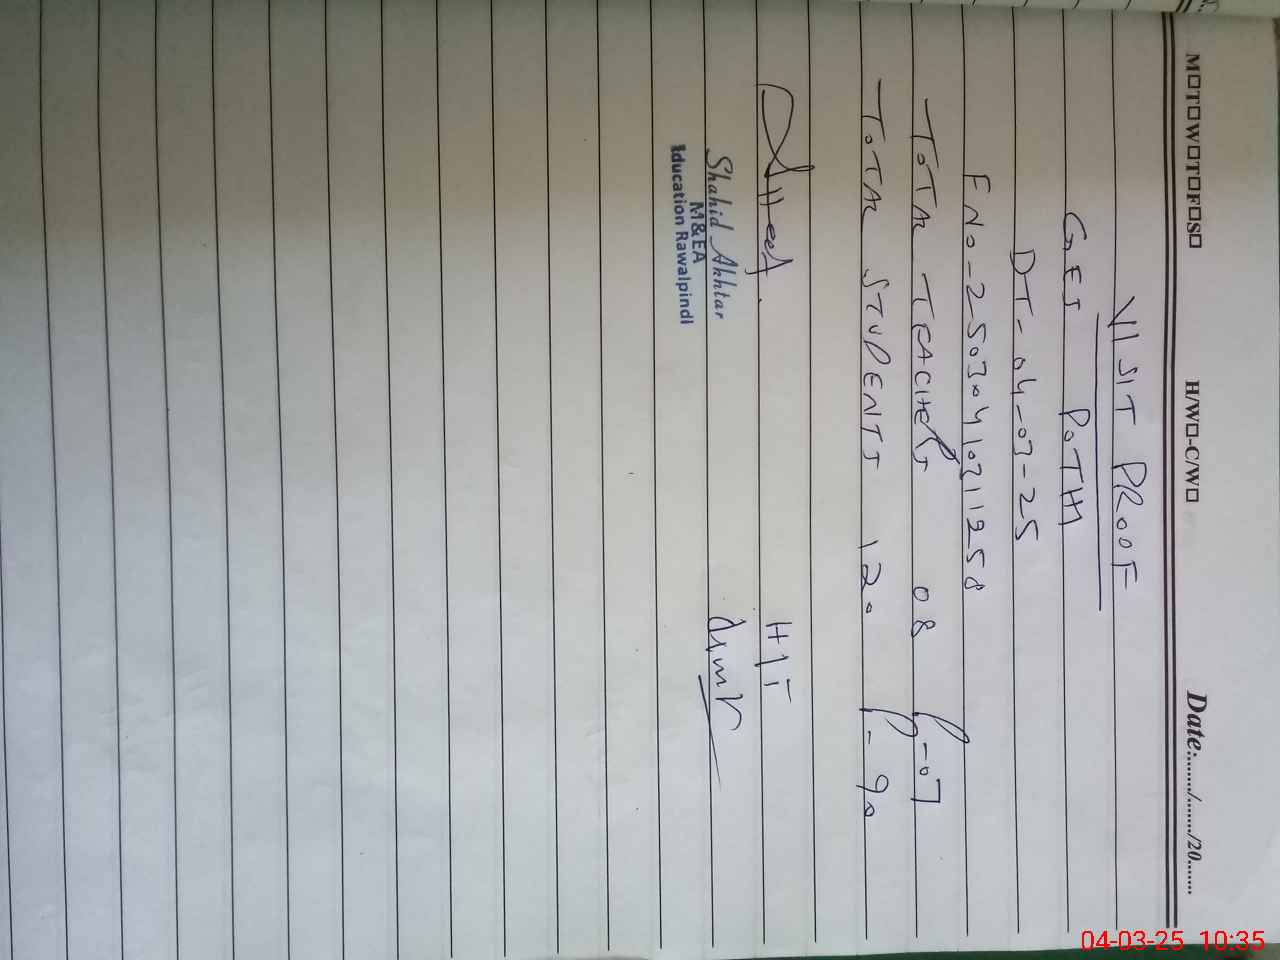 M□T□W□T□F□S□ H/W□-C/W□ Date:......./......./20.......
VISIT PROOF
GES POTH
DT- 04-03-25
FNO-25030410311258
TOTAL TEACHERS 08 P-07
TOTAL STUDENTS 120 P-90
H/T
Shahid Akhtar
M&EA
Education Rawalpindi
04-03-25 10:35